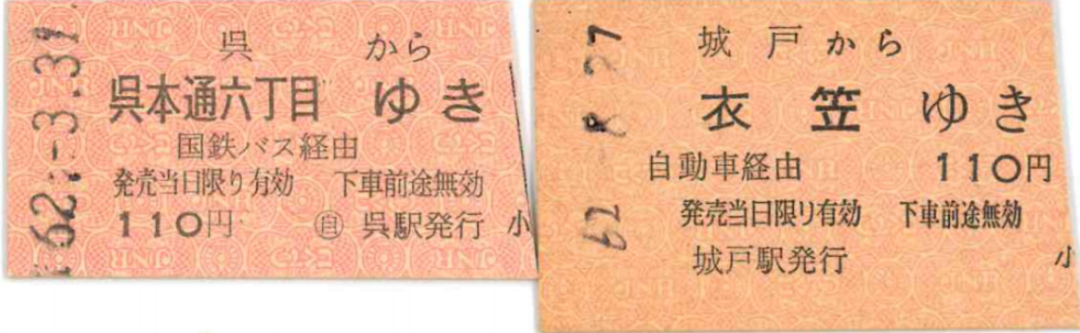 62.-3.31
呉 から
呉本通六丁目 ゆき
国鉄バス経由
発売当日限り有効 下車前途無効
110円 ㊀自 呉駅発行 小
62 -8 27
城戸から
衣笠 ゆき
自動車経由 110円
発売当日限り有効 下車前途無効
城戸駅発行 小